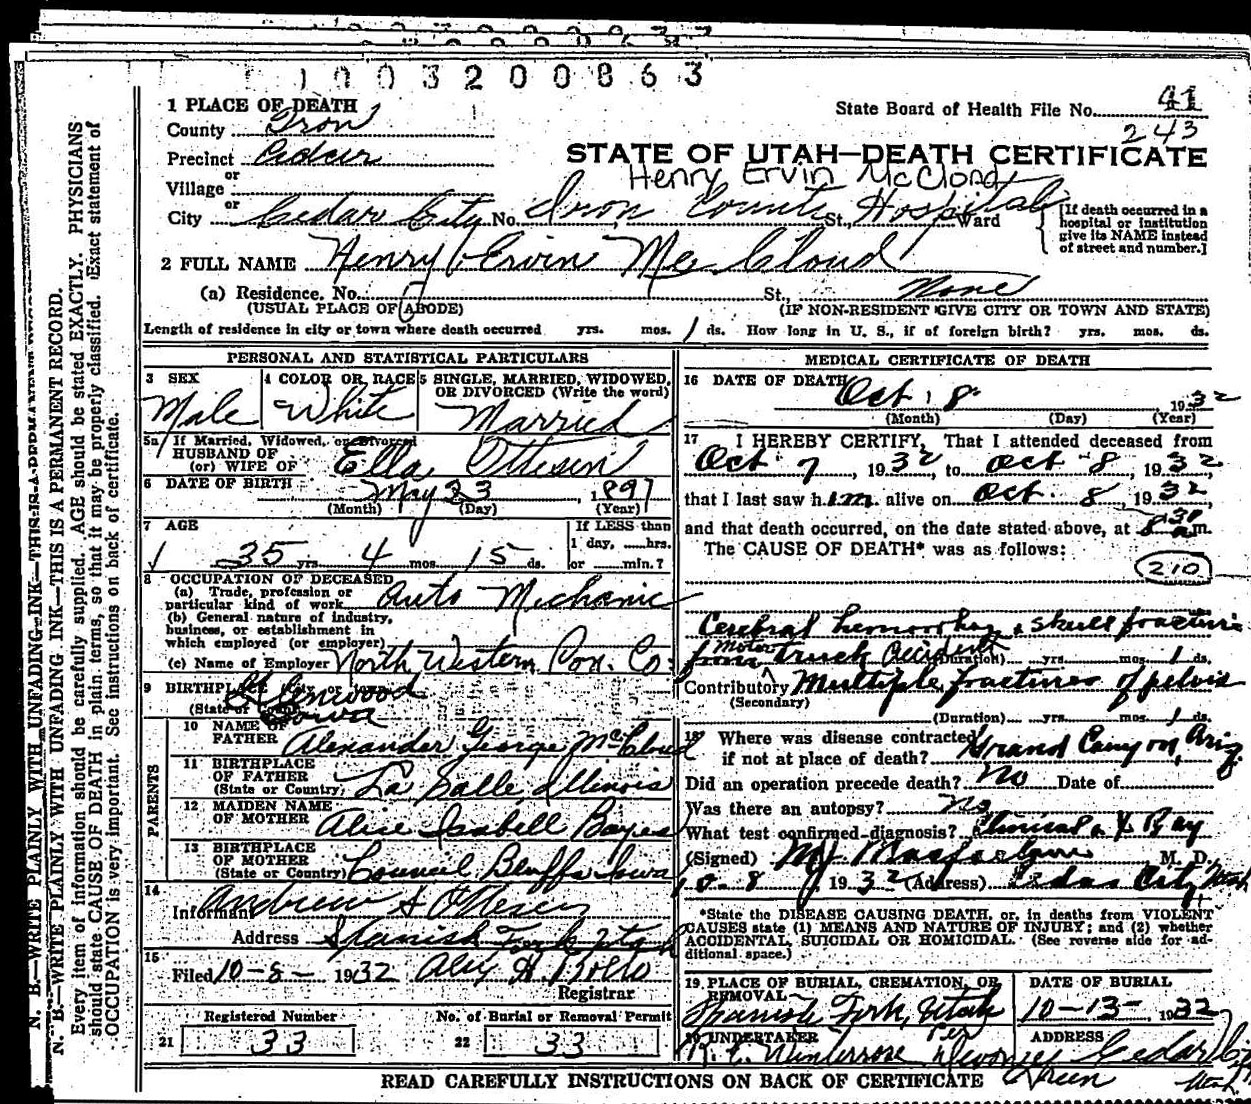 1003200863
1 PLACE OF DEATH
State Board of Health File No. 41
243
County Iron
Precinct Cedar
or
Village
or
STATE OF UTAH—DEATH CERTIFICATE
Henry Ervin McCloud
City Cedar City No. Iron County St., Hospital Ward
[If death occurred in a hospital or institution give its NAME instead of street and number.]
2 FULL NAME Henry Ervin Mc Cloud
(a) Residence. No. St., None
(USUAL PLACE OF ABODE) (IF NON-RESIDENT GIVE CITY OR TOWN AND STATE)
Length of residence in city or town where death occurred yrs. mos. 1 ds. How long in U. S., if of foreign birth? yrs. mos. ds.
PERSONAL AND STATISTICAL PARTICULARS
3 SEX
Male
4 COLOR OR RACE
White
5 SINGLE, MARRIED, WIDOWED, OR DIVORCED (Write the word)
Married
5a If Married, Widowed, or Divorced
HUSBAND OF
(or) WIFE OF Ella Ottesen
6 DATE OF BIRTH May 23, 1897
(Month) (Day) (Year)
7 AGE
35 yrs. 4 mos. 15 ds.
If LESS than
1 day, ......hrs.
or ......min.?
8 OCCUPATION OF DECEASED
(a) Trade, profession or
particular kind of work Auto Mechanic
(b) General nature of industry,
business, or establishment in
which employed (or employer)
(c) Name of Employer North Western Con. Co.
9 BIRTHPLACE Glenwood
Iowa
PARENTS
10 NAME OF
FATHER Alexander George McCloud
11 BIRTHPLACE
OF FATHER
(State or Country) La Salle, Illinois
12 MAIDEN NAME
OF MOTHER Alice Isabell Bayes
13 BIRTHPLACE
OF MOTHER
(State or Country) Council Bluffs Iowa
14
Informant Andrew S Ottesen
Address Spanish Fork Utah
15
Filed 10-8- 1932 Alex H. Rollo
Registrar
Registered Number
21 33
No. of Burial or Removal Permit
22 33
MEDICAL CERTIFICATE OF DEATH
16 DATE OF DEATH Oct. 8 1932
(Month) (Day) (Year)
17 I HEREBY CERTIFY, That I attended deceased from
Oct. 7, 1932, to Oct 8, 1932
that I last saw him alive on Oct. 8 1932
and that death occurred, on the date stated above, at 8 30 a m.
The CAUSE OF DEATH* was as follows:
210
Cerebral hemorrhage & skull fracture
from Motor Truck Accident (Duration) yrs. mos. 1 ds.
Contributory Multiple fractures of pelvis
(Secondary)
(Duration) yrs. mos. 1 ds.
18 Where was disease contracted
if not at place of death? Grand Canyon, Ariz.
Did an operation precede death? No Date of
Was there an autopsy? No
What test confirmed diagnosis? Clinical & X Ray
(Signed) M J Macfarlane M. D.
10-8, 1932 (Address) Cedar City, Utah
*State the DISEASE CAUSING DEATH, or, in deaths from VIOLENT
CAUSES state (1) MEANS AND NATURE OF INJURY; and (2) whether
ACCIDENTAL, SUICIDAL OR HOMICIDAL. (See reverse side for ad-
ditional space.)
19 PLACE OF BURIAL, CREMATION, OR
REMOVAL
Spanish Fork, Utah
DATE OF BURIAL
10-13- 1932
UNDERTAKER
R. C. Winterrose Per
Green
ADDRESS
Cedar City
Utah
READ CAREFULLY INSTRUCTIONS ON BACK OF CERTIFICATE
N. B.—WRITE PLAINLY WITH UNFADING INK—THIS IS A PERMANENT RECORD.
N. B.—WRITE PLAINLY WITH UNFADING INK—THIS IS A PERMANENT RECORD.
Every item of information should be carefully supplied. AGE should be stated EXACTLY. PHYSICIANS
should state CAUSE OF DEATH in plain terms, so that it may be properly classified. Exact statement of
OCCUPATION is very important. See instructions on back of certificate.